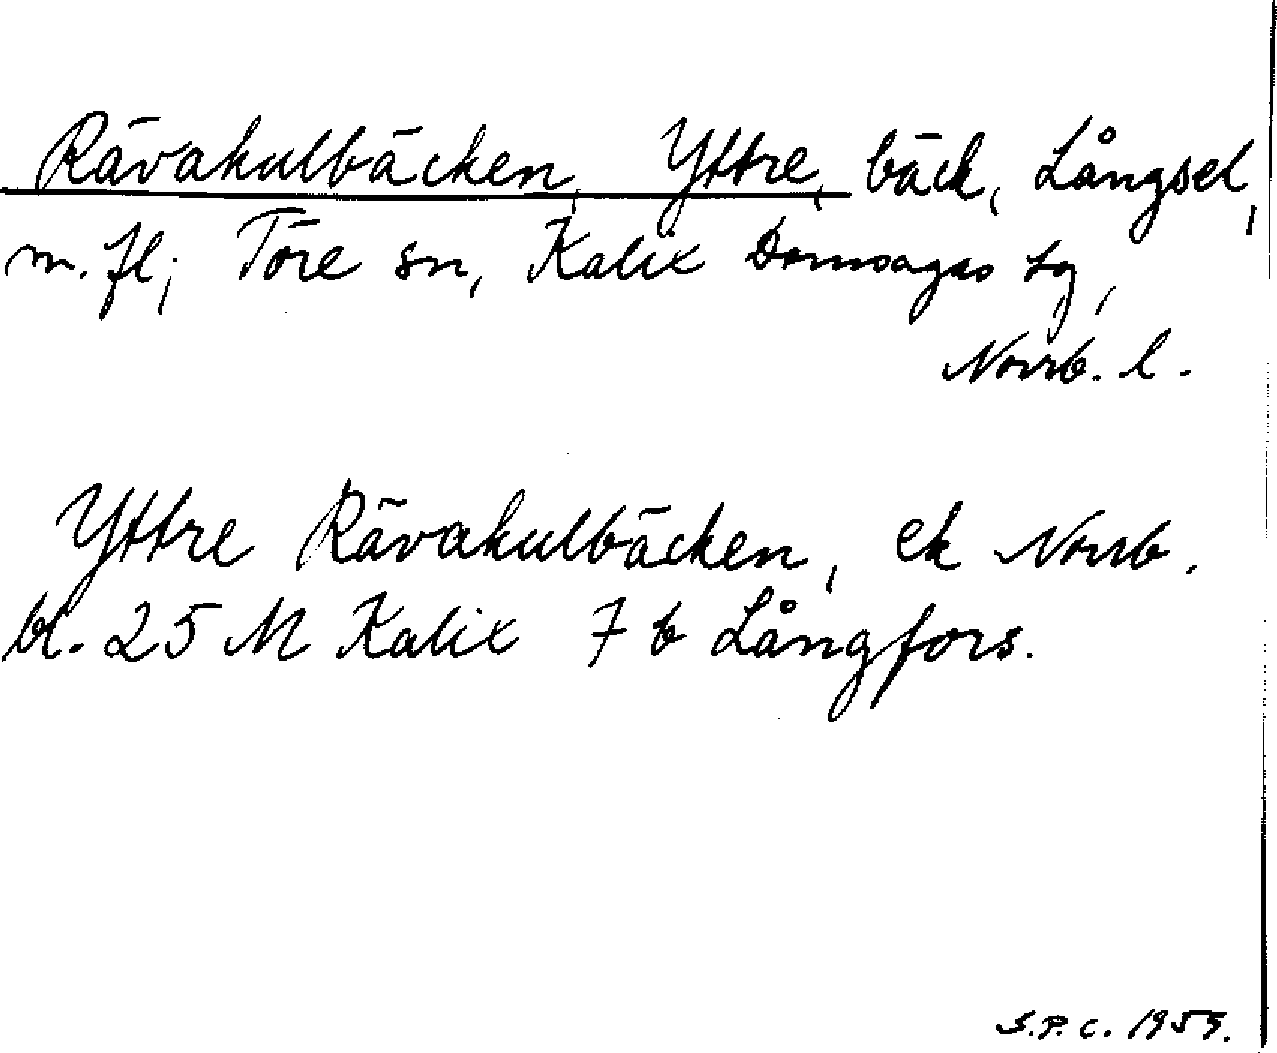 Rävakulbäcken, Yttre, bäck, Långsel,
m. fl; Töre sn, Kalix Domsagas tg,
Norrb. l.
Yttre Rävakulbäcken, ek Norrb.
bl. 25 M Kalix 7 b Långfors.
S.P.C. 1955.